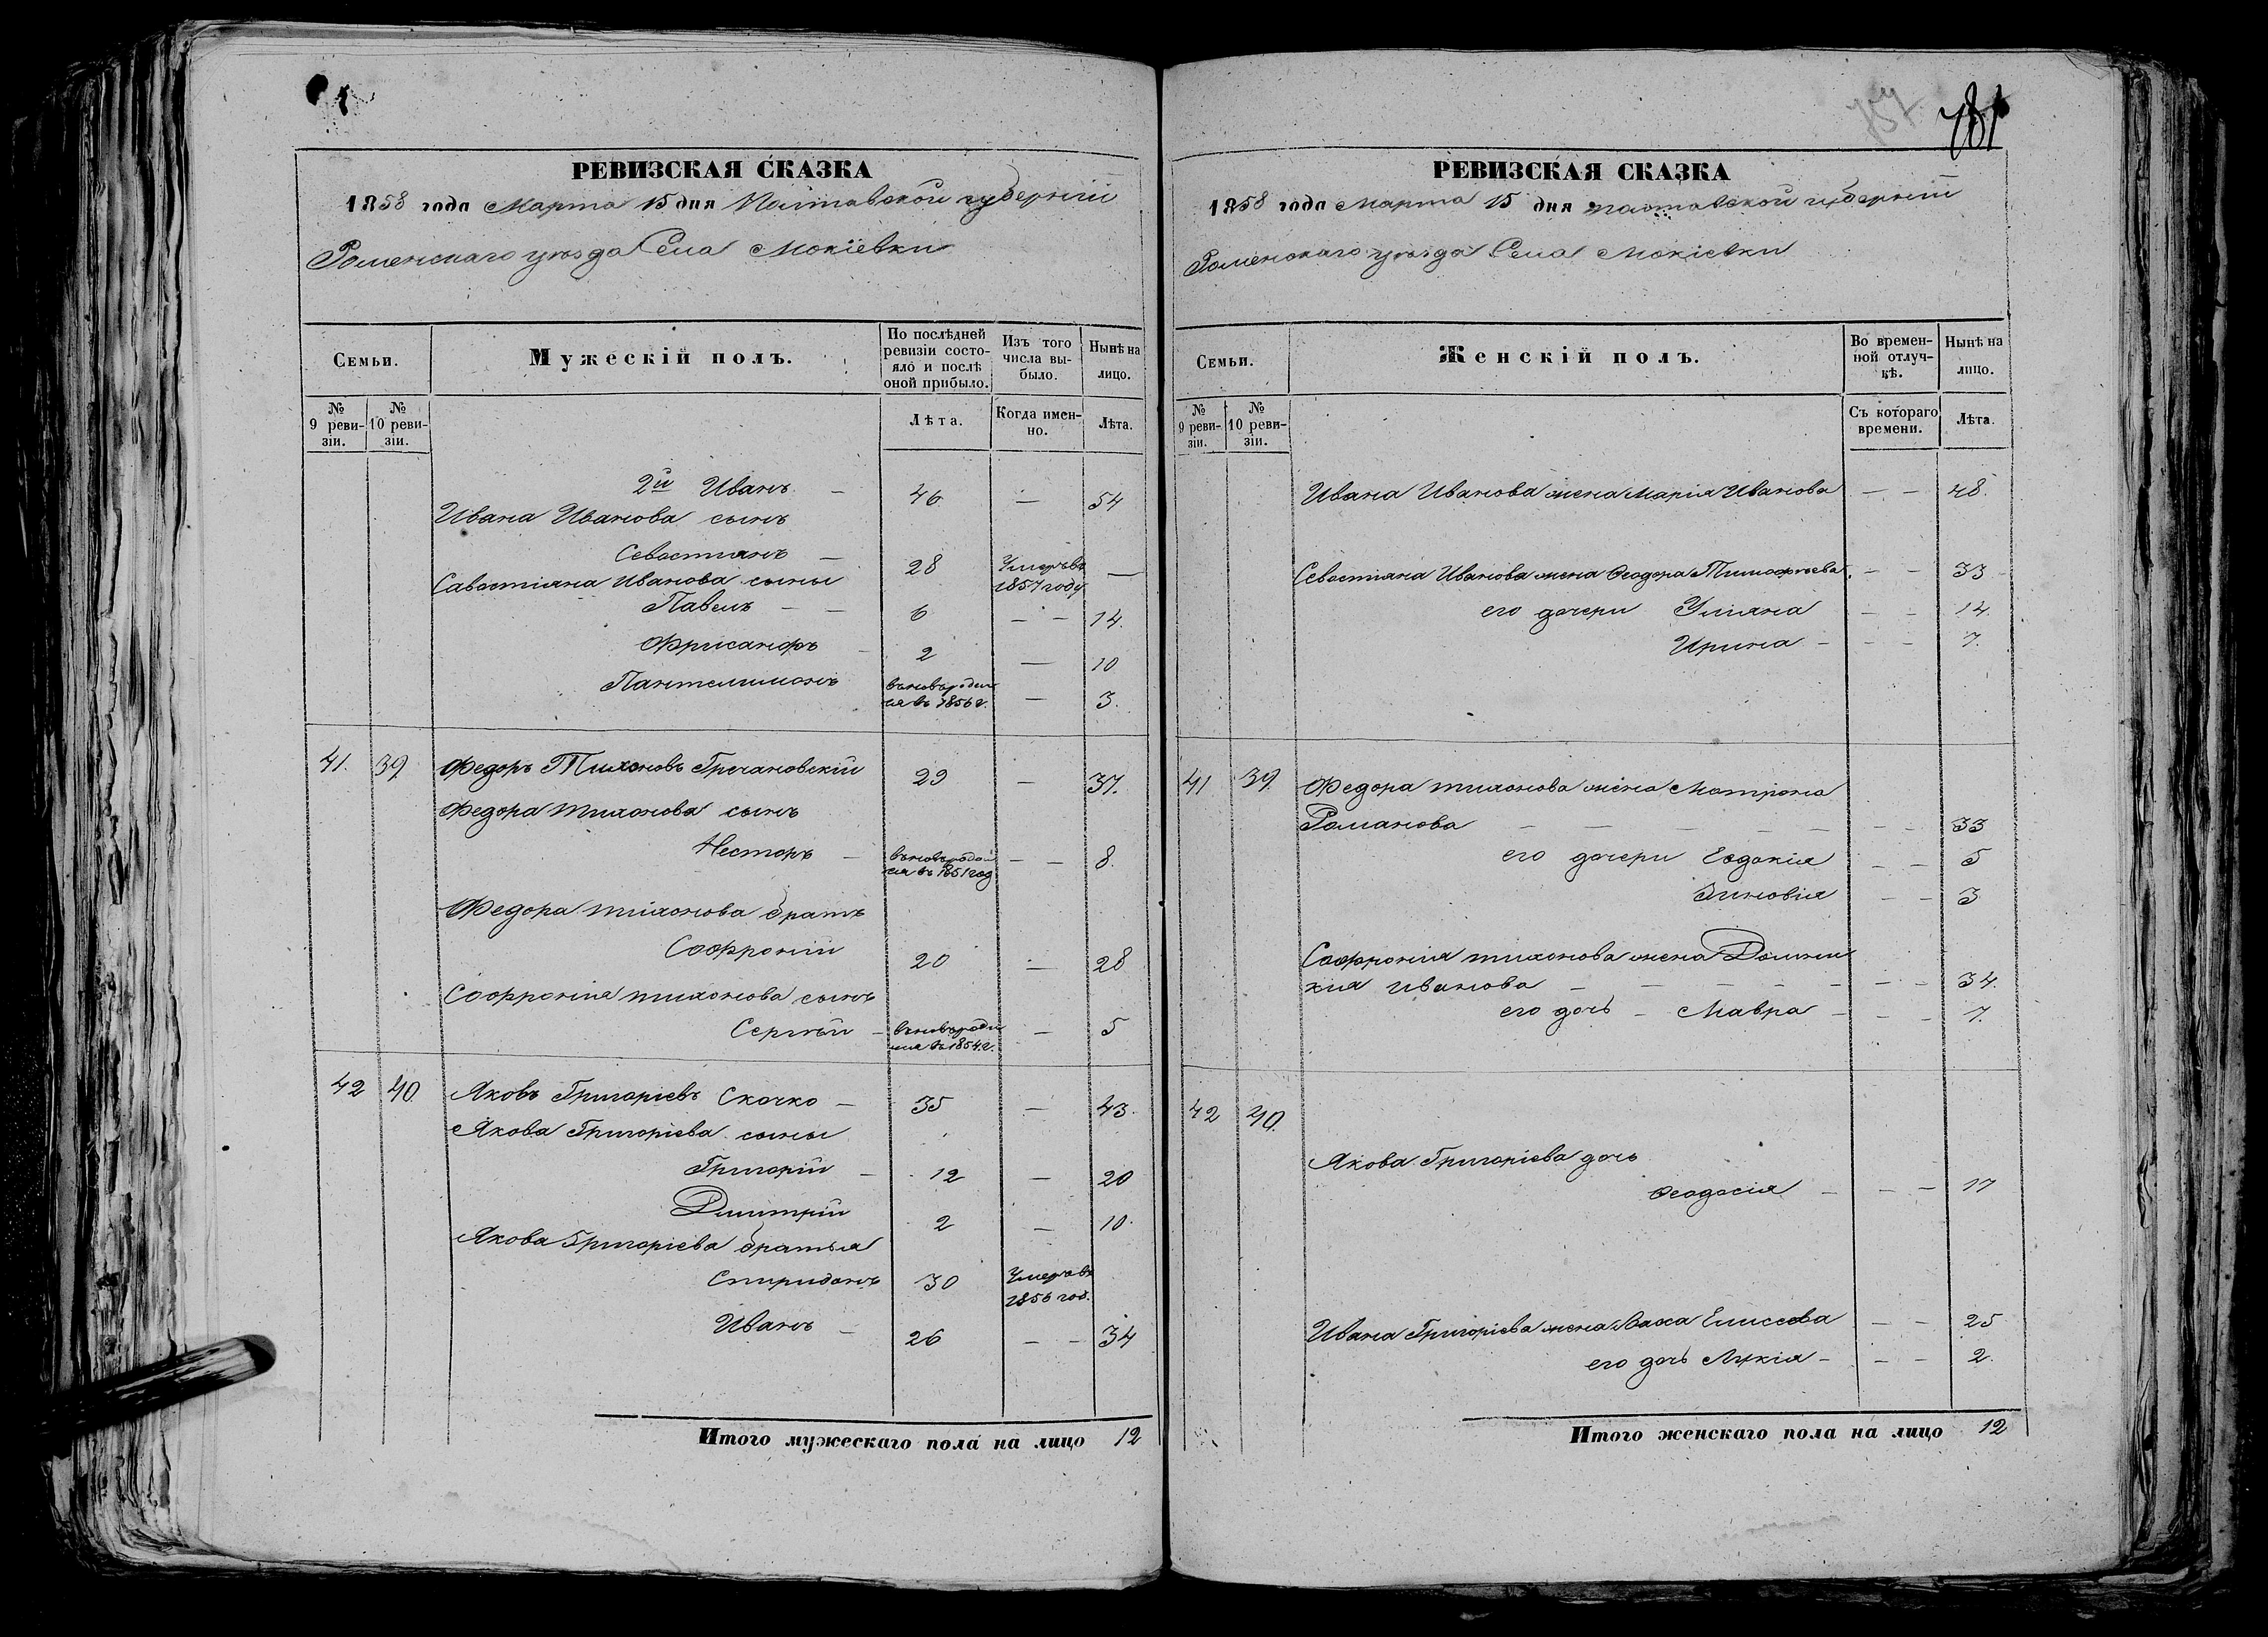 РЕВИЗСКАЯ СКАЗКА
1858 года Марта 15 дня Полтавской губерніи
Роменскаго уѣзда Села Мокіевки
Семьи.
Мужескій полъ.
По послѣдней ревизіи состояло и послѣ оной прибыло.
Изъ того числа выбыло.
Нынѣ на лицо.
№ 9 ревизіи.
№ 10 ревизіи.
Лѣта.
Когда именно.
Лѣта.
2й Иванъ — 46 — 54
Ивана Иванова сынъ
Севастіянъ — 28 Умеръ въ 1857 году —
Савостіяна Иванова сыны
Павелъ — — 6 — — 14.
Фрисанфъ — 2 — 10
Пантелимонъ вновь родился въ 1856 г. — 3.
41. 39 Федоръ Тихоновъ Гречановскій 29 — 37.
Федора Тихонова сынъ
Несторъ — вновь родился въ 1851 год — — 8.
Федора Тихонова братъ
Софроній 20 — 28
Софронія Тихонова сынъ
Сергѣй — вновь родился въ 1854 г. — 5
42 40 Яковъ Григоріевъ Скочко — 35 — 43.
Якова Григоріева сыны
Григорій — 12 — 20
Дмитрій 2 — 10.
Якова Григоріева братья
Спиридонъ 30 Умеръ въ 1856 год.
Иванъ — 26 — — 34
Итого мужескаго пола на лицо 12
РЕВИЗСКАЯ СКАЗКА
1858 года Марта 15 дня Полтавской губерніи
Роменскаго уѣзда Села Мокіевки
Семьи.
Женскій полъ.
Во временной отлучкѣ.
Нынѣ на лицо.
№ 9 ревизіи.
№ 10 ревизіи.
Съ котораго времени.
Лѣта.
Ивана Иванова жена Марія Иванова — — 48.
Севостіяна Иванова жена Ѳеодора Тимофѣева. — — 33
его дочери Уліяна — — 14.
Ирина — — — 7.
41 39. Федора Тихонова жена Матрона
Романова — — — — — — — 33
его дочери Евдокія — — 5
Зиновія — — 3
Софронія Тихонова жена Домни
кія Иванова — — — — — — — 34.
его дочь — Мавра — — — 7.
42 40.
Якова Григоріева дочь
Ѳеодосія — — — 17
Ивана Григоріева жена Васса Елисеева — — 25
его дочь Лукія — — — 2.
Итого женскаго пола на лицо 12